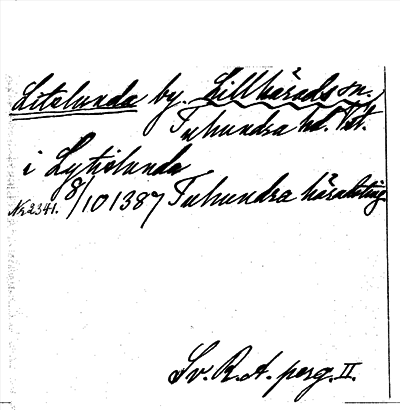 Litslunda by. Lillhärads sn.
Tuhundra hd. Vstm.
i Lytislunda
8/10 1387 Tuhundra häradsting
Nr 2341.
Sv. R. A. perg. II.